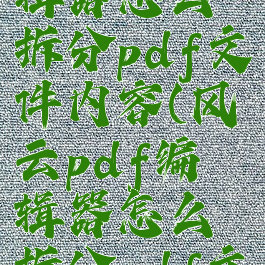 辑器怎么
拆分pdf文
件内容(风
云pdf编
辑器怎么
拆分pdf文